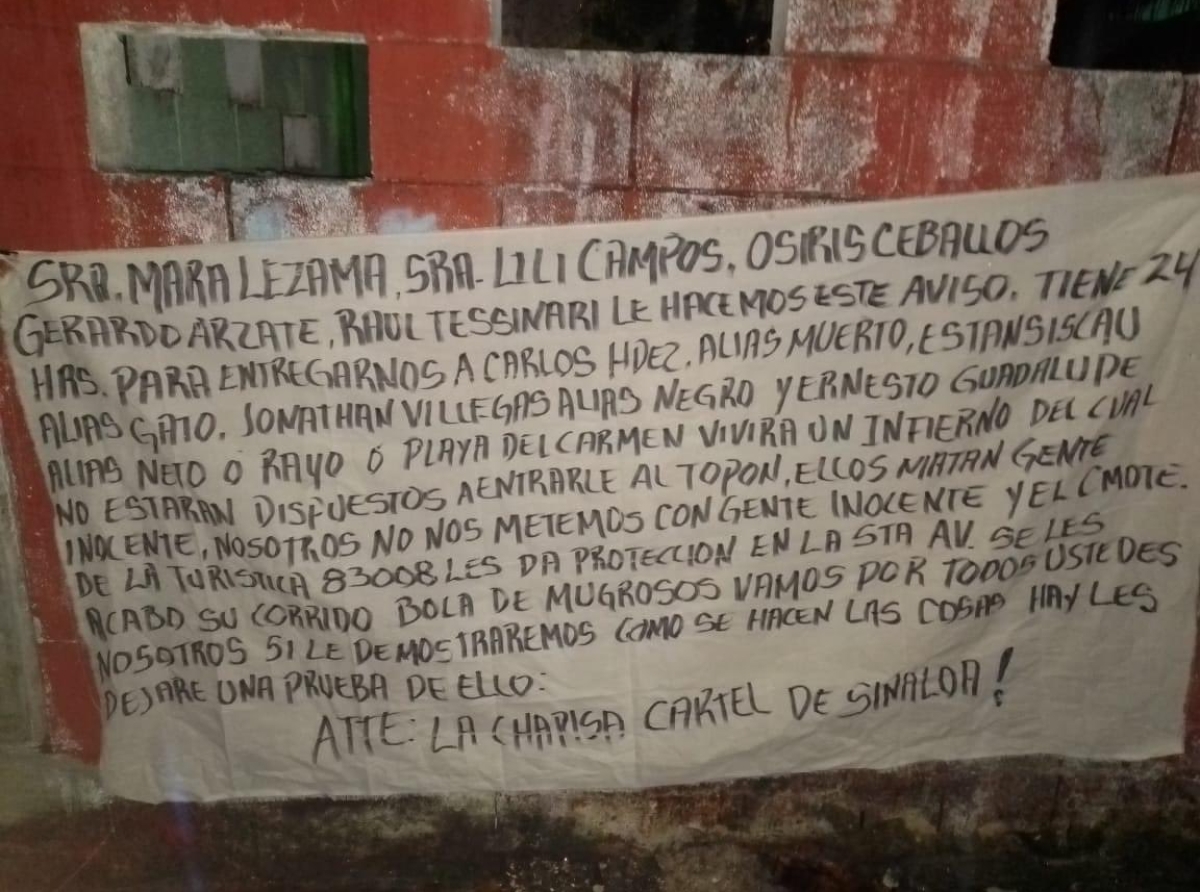 SRA. MARA LEZAMA, SRA. LILI CAMPOS, OSIRIS CEBALLOS
GERARDO ARZATE, RAUL TESSINARI LE HACEMOS ESTE AVISO. TIENE 24
HRS. PARA ENTREGARNOS A CARLOS HDEZ. ALIAS MUERTO, ESTANSISCAU
ALIAS GATO. JONATHAN VILLEGAS ALIAS NEGRO Y ERNESTO GUADALUPE
ALIAS NETO O RAYO O PLAYA DEL CARMEN VIVIRA UN INFIERNO DEL CUAL
NO ESTARAN DISPUESTOS AENTRARLE AL TOPON, ELLOS MATAN GENTE
INOCENTE, NOSOTROS NO NOS METEMOS CON GENTE INOCENTE Y EL CMOTE.
DE LA TURISTICA 83008 LES DA PROTECCION EN LA 5TA AV. SE LES
ACABO SU CORRIDO BOLA DE MUGROSOS VAMOS POR TODOS USTEDES
NOSOTROS SI LE DEMOSTRAREMOS COMO SE HACEN LAS COSAS HAY LES
DEJARE UNA PRUEBA DE ELLO:
ATTE: LA CHAPISA CARTEL DE SINALOA!